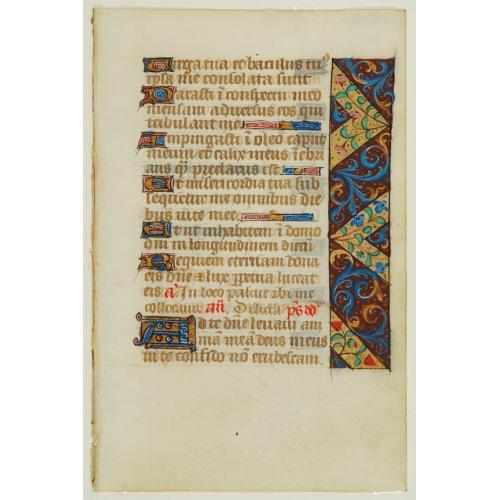 Virga tua et baculus tu
ipsa me consolata sunt
Parasti i conspectu meo
mensam adversus eos qui
tribulant me
Impingasti i oleo caput
meum et calix meus iebri
ans q̃ preclarus est
Et misericordia tua sub
sequetur me omnibus die
bus vite mee
Et ut inhabitem i domo
dni in longitudinem dieru
Requiem eternam dona
eis dñe et lux ppetua luceat
eis a. In loco pascue ibi me
collocavit añ. Delicta ps dd
Ad te dñe levavi ani
mam meā deus meus
in te confido nō erubescam.